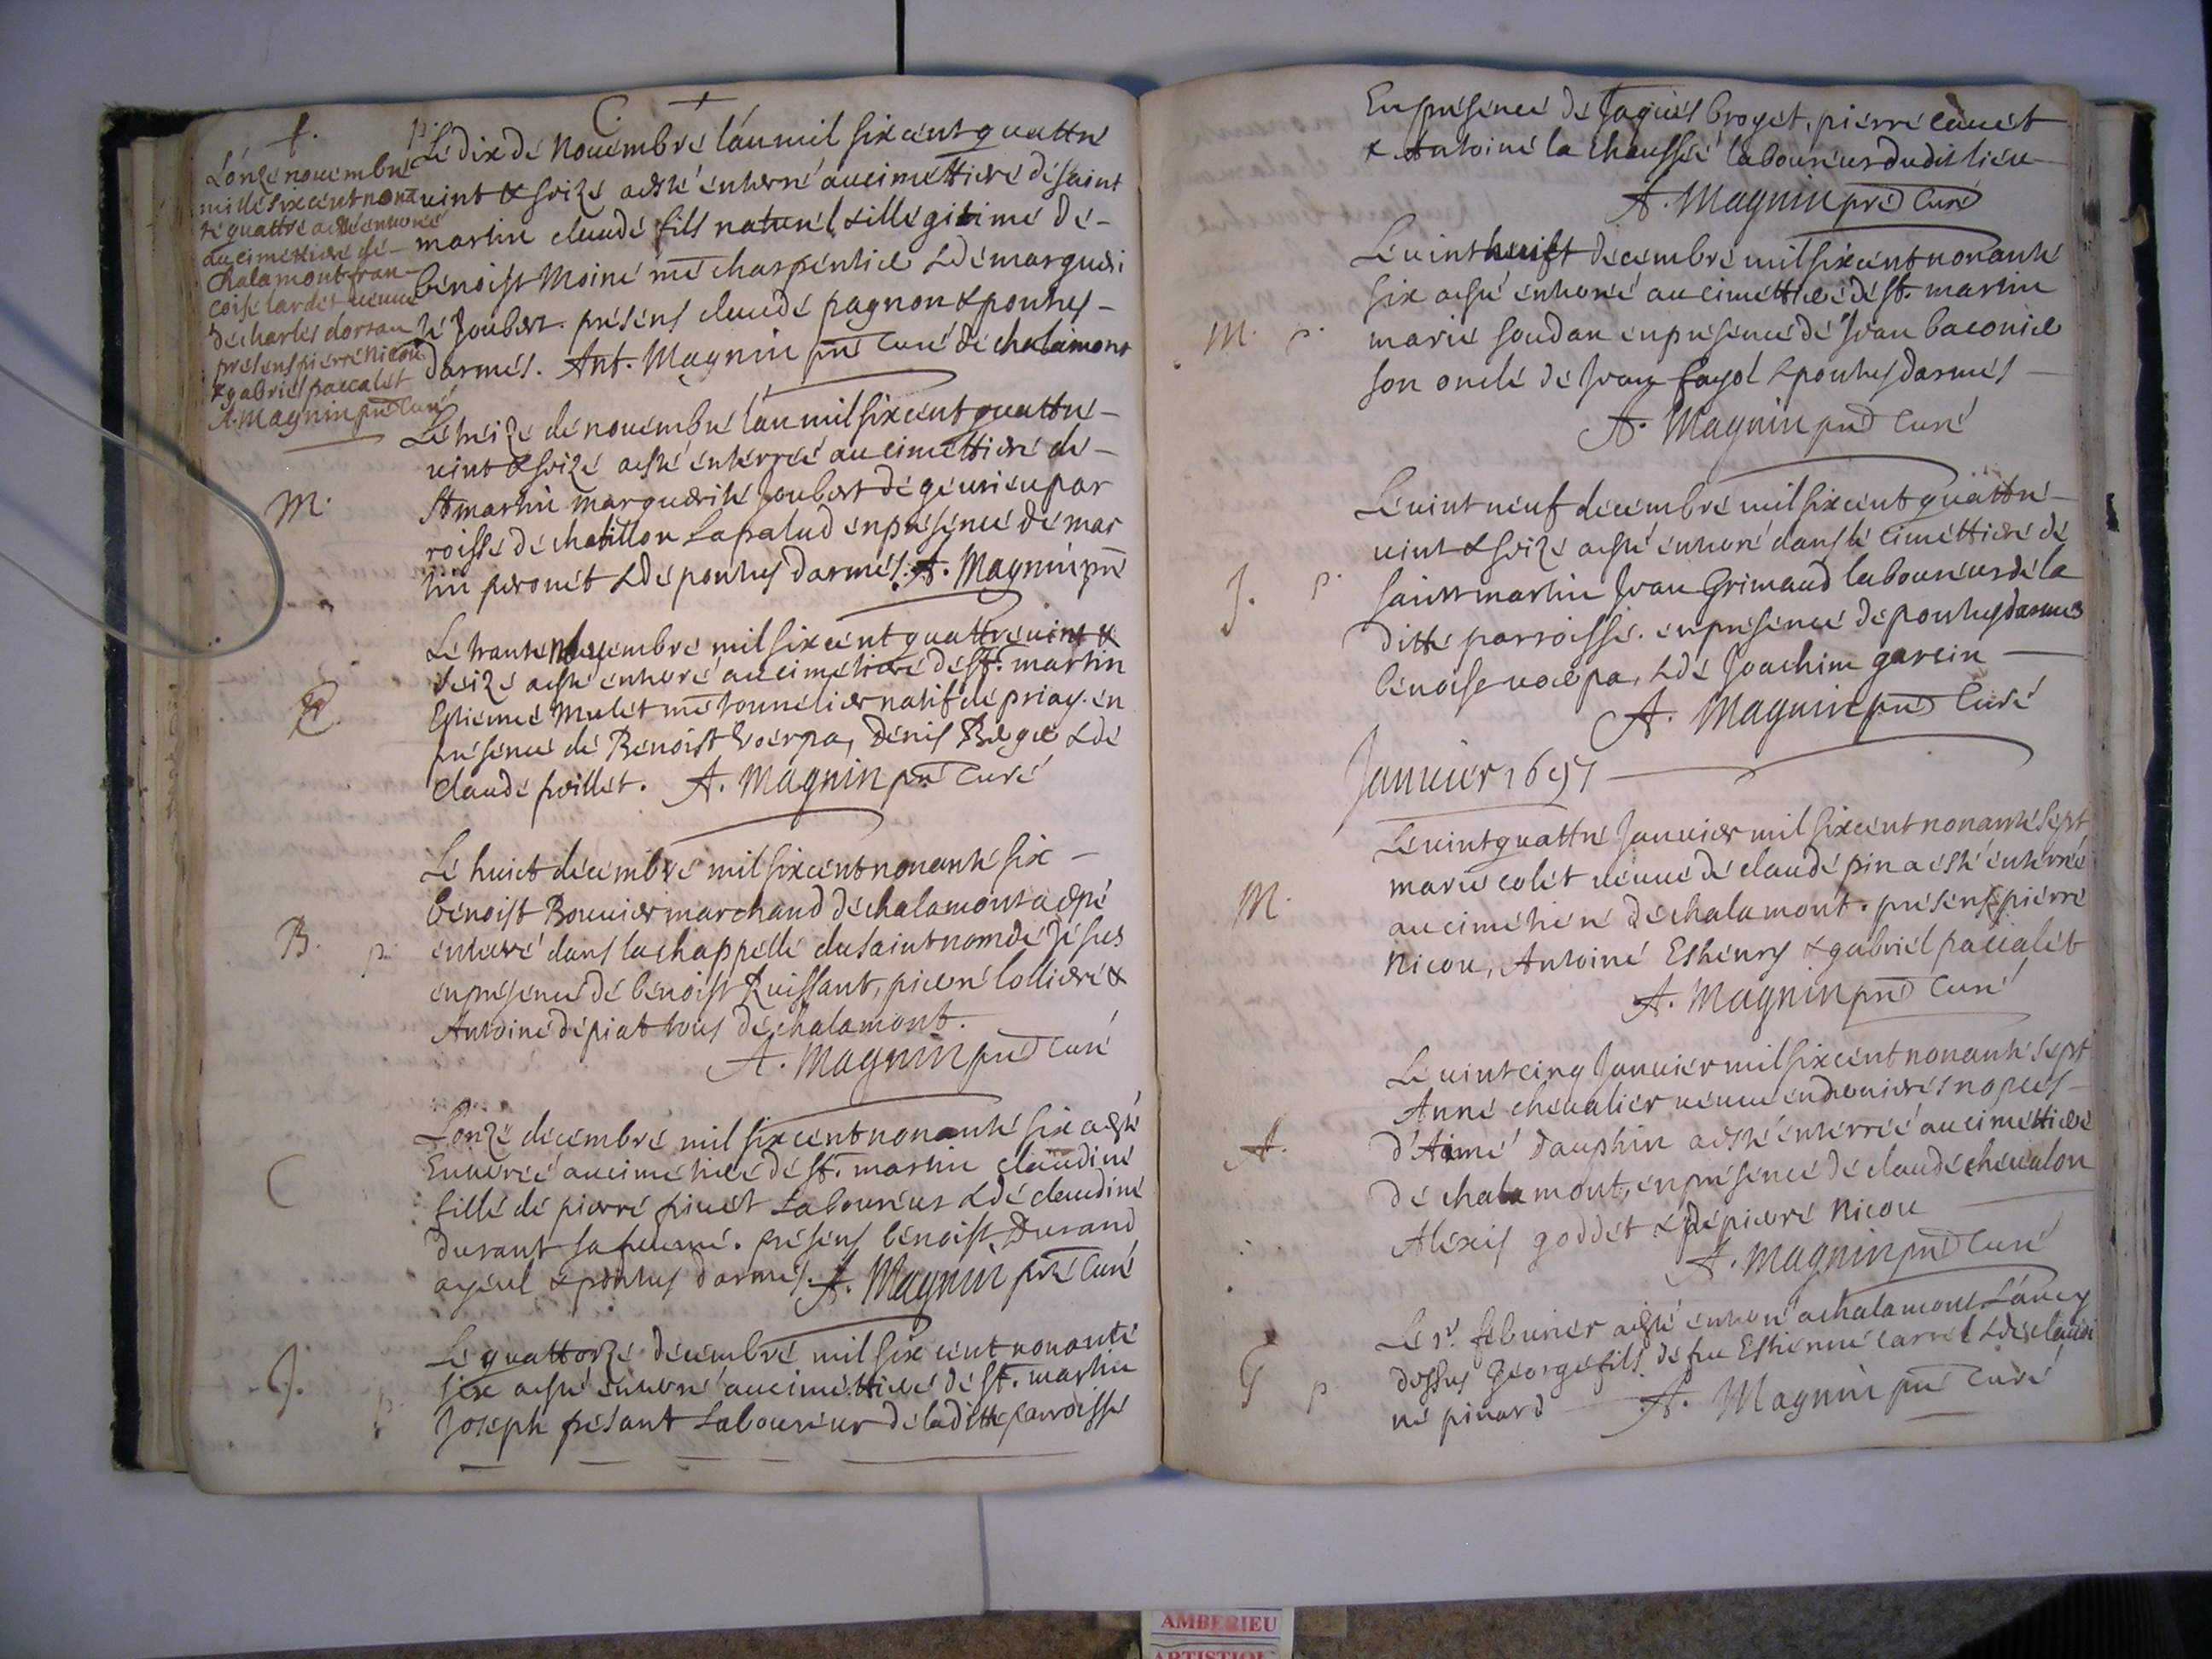 C. +
f.
L'onze nouembre
mille six cent nona
te quattre a esté enterré
au cimettiere de
Chalamont fran
coise lardet ueuue
de charles dorsan
presens pierre nicou
& gabriel paccalet
A. Magnin pre Curé
p. Le dix de Nouembre l'an mil six cent quattre
uint & seize a esté enterré au cimettiere de saint
martin claude fils naturel & illegitime de
benoist Moine me charpentier & de margueri
te Joubert. presens claude pagnon & ponthus
darmes. Ant. Magnin pre Curé de chalamont
Le treize de nouembre l'an mil six cent quattre
uint & seize a esté enterrée au cimettiere de
M. St martin marguerite Joubert de geurieu par
roisse de chatillon Lapalud en presence de mar
tin peronet & de ponthus darmes. A. Magnin pre
Le trante nouembre mil six cent quattreuint &
seize a esté enterré au cimetiere de St. martin
E. Estienne Mulet me tonnelier natif de priay. en
presence de Benoist Voerpa, Denis Berger & de
claude poillet. A. Magnin pre Curé
Le huict decembre mil six cent nonante six
benoist Bouuier marchand de chalamont a esté
B. p. enterré dans la chappelle du saint nom de Jesus
en presence de benoist Ruissant, pierre lolliere &
Antoine depiat tous de chalamont.
A. Magnin pre Curé
L'onze decembre mil six cent nonante six a esté
Enterrée au cimetiere de St. martin claudine
C fille de pierre piuet Laboureur & de claudine
durant sa femme. presens benoist Durand
ayeul & ponthus darmes. A. Magnin pre Curé
Le quattorze decembre mil six cent nonante
J. six a esté enterré au cimettiere de St. martin
p. Joseph presant Laboureur de laditte parroisse
En presence de Jaques broyet, pierre cauet
& Antoine la chaussée laboureurs dudit lieu
A. Magnin pre Curé
Le uint huict decembre mil six cent nonante
six a esté enterré au cimettiere de St. martin
M. p. marie soudan en presence de Jean baconier
son oncle de Jean fayol & ponthus darmes
A. Magnin pre Curé
Le uint neuf decembre mil six cent quattre
uint & seize a esté enterré dans le cimettiere de
J. p. saint martin Jean Grimaud laboureur de la
ditte parroisse. en presence de ponthus darmes
benoise uoerpa, & de Joachim garcin
A. Magnin pre Curé
Januier 1697
Le uint quattre Januier mil six cent nonante sept
marie colet ueuue de claude pin a esté enterrée
M. au cimetiere de chalamont. presens pierre
nicou, Antoine Esthenry & gabriel paccalet
A. Magnin pre Curé
Le uint cinq Januier mil six cent nonante sept
Anne cheualier ueuue en dernieres nopces
A. d'Aimé dauphin a esté enterrée au cimettiere
de chalamont, en presence de claude cheualon
Alexis goddet & de pierre nicou
A. Magnin pre Curé
Le 1r. februier a esté enterré a chalamont L'an cy
dessus George fils de feu Estienne carrel & de claudi
G p ne pinard A. Magnin pre Curé
AMBERIEU